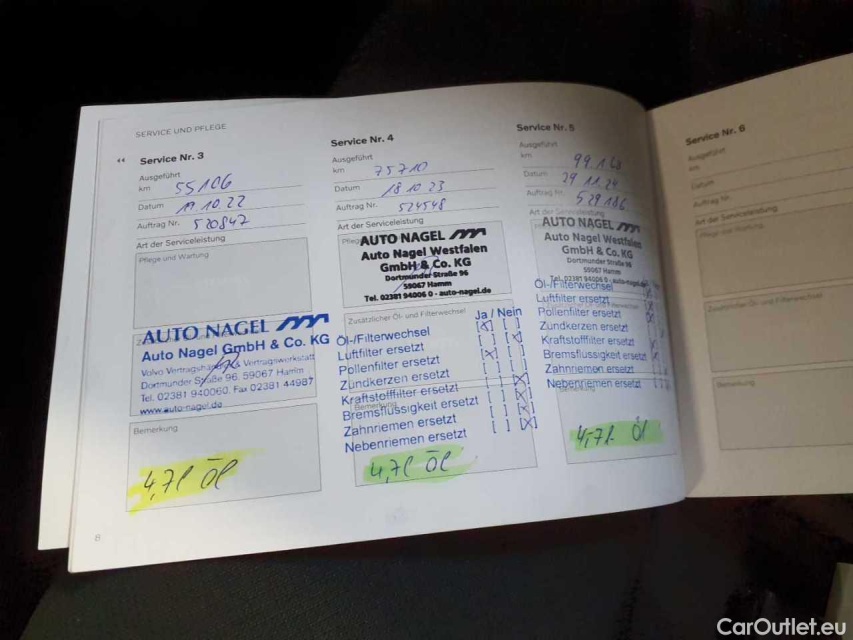 SERVICE UND PFLEGE
Service Nr. 3
Ausgeführt
km 55106
Datum 19.10.22
Auftrag Nr. 520847
Art der Serviceleistung
Pflege und Wartung
AUTO NAGEL
Auto Nagel GmbH & Co. KG
Volvo Vertragshändler Vertragswerkstatt
Dortmunder Straße 96, 59067 Hamm
Tel. 02381 940060, Fax 02381 44987
www.auto-nagel.de
Bemerkung
4,7l Öl
8
Service Nr. 4
Ausgeführt
km 75710
Datum 18 10 23
Auftrag Nr. 524548
Art der Serviceleistung
AUTO NAGEL
Auto Nagel Westfalen
GmbH & Co. KG
Dortmunder Straße 96
59067 Hamm
Tel. 02381 94006 0 - auto-nagel.de
Zusätzlicher Öl- und Filterwechsel
Ja / Nein
Öl-/Filterwechsel [X] [ ]
Luftfilter ersetzt [ ] [X]
Pollenfilter ersetzt [X] [ ]
Zündkerzen ersetzt
Kraftstofffilter ersetzt [ ] [X]
Bremsflüssigkeit ersetzt [ ] [X]
Zahnriemen ersetzt [ ] [X]
Nebenriemen ersetzt [ ] [X]
4,7l Öl
Service Nr. 5
Ausgeführt
km 99168
Datum 29 11 24
Auftrag Nr. 529186
Art der Serviceleistung
AUTO NAGEL
Auto Nagel Westfalen
GmbH & Co. KG
Dortmunder Straße 96
59067 Hamm
Tel. 02381 94006 0 - auto-nagel.de
Öl-/Filterwechsel
Luftfilter ersetzt
Pollenfilter ersetzt
Zündkerzen ersetzt
Kraftstofffilter ersetzt
Bremsflüssigkeit ersetzt
Zahnriemen ersetzt
Nebenriemen ersetzt
Bemerkung
4,7l Öl
Service Nr. 6
Ausgeführt
km
Datum
Auftrag Nr.
Art der Serviceleistung
Pflege und Wartung
Zusätzlicher Öl- und Filterwechsel
Bemerkung
CarOutlet.eu